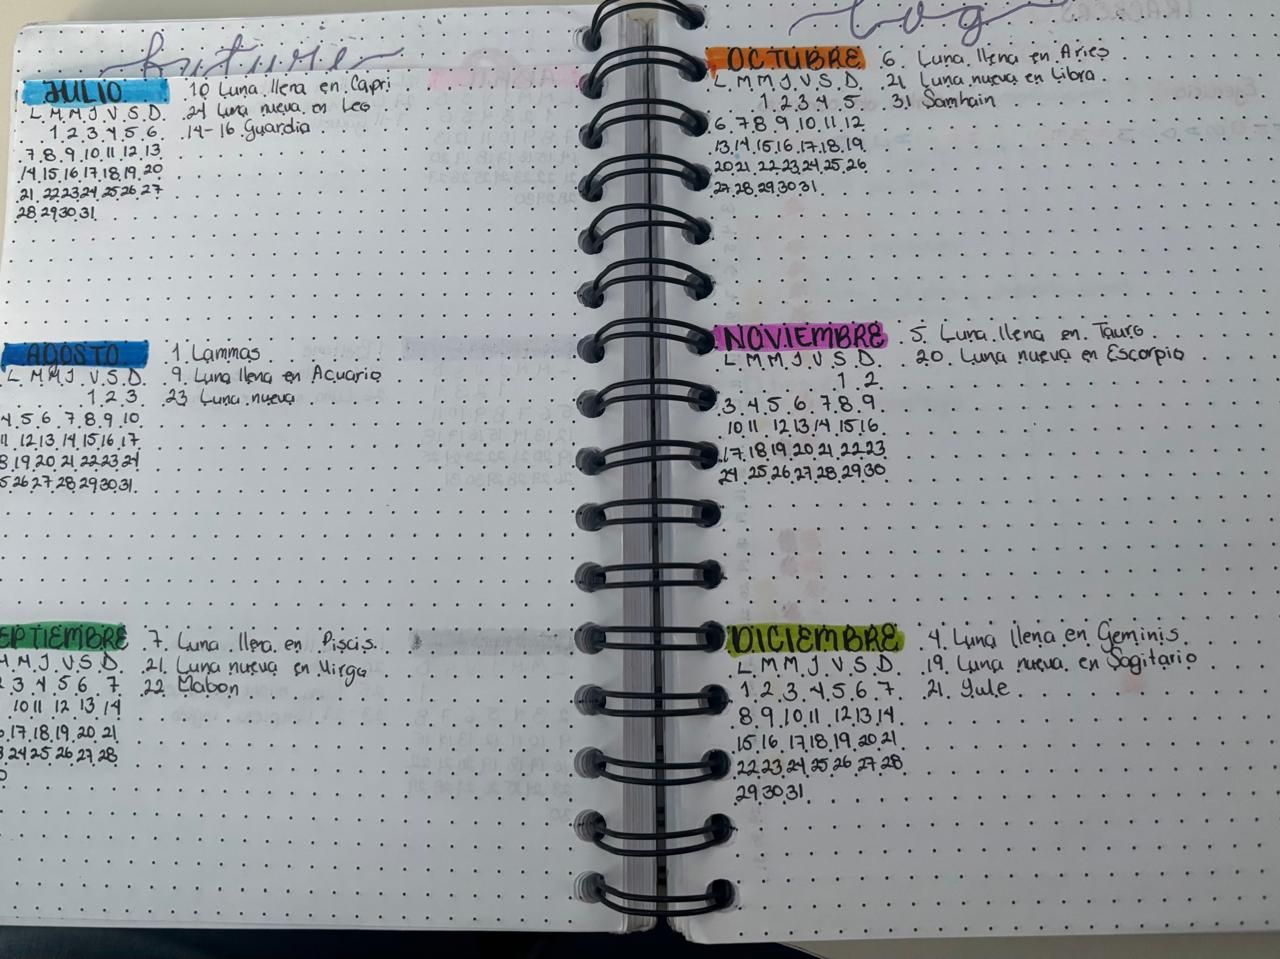 future
JULIO
L M M J V S D.
1 2 3 4 5 6.
7 8 9 10 11 12 13
14 15 16 17 18 19 20
21 22 23 24 25 26 27
28 29 30 31
10 Luna llena en Capri
24 Luna nueva en Leo
14-16 Guardia
AGOSTO
L M M J V S D.
1 2 3
4 5 6 7 8 9 10
11 12 13 14 15 16 17
8 19 20 21 22 23 24
5 26 27 28 29 30 31
1 Lammas
9 Luna llena en Acuario
23 Luna nueva
EPTIEMBRE
M M J V S D.
2 3 4 5 6 7
10 11 12 13 14
17 18 19 20 21
24 25 26 27 28
0
7 Luna llena en Piscis
21 Luna nueva en Virgo
22 Mabon
Log
OCTUBRE
L M M J V S D.
1 2 3 4 5
6 7 8 9 10 11 12
13 14 15 16 17 18 19
20 21 22 23 24 25 26
27 28 29 30 31
6 Luna llena en Aries
21 Luna nueva en Libra
31 Samhain
NOVIEMBRE
L M M J V S D
1 2
3 4 5 6 7 8 9
10 11 12 13 14 15 16
17 18 19 20 21 22 23
24 25 26 27 28 29 30
5 Luna llena en Tauro
20 Luna nueva en Escorpio
DICIEMBRE
L M M J V S D
1 2 3 4 5 6 7
8 9 10 11 12 13 14
15 16 17 18 19 20 21
22 23 24 25 26 27 28
29 30 31
4 Luna llena en Geminis
19 Luna nueva en Sagitario
21 Yule